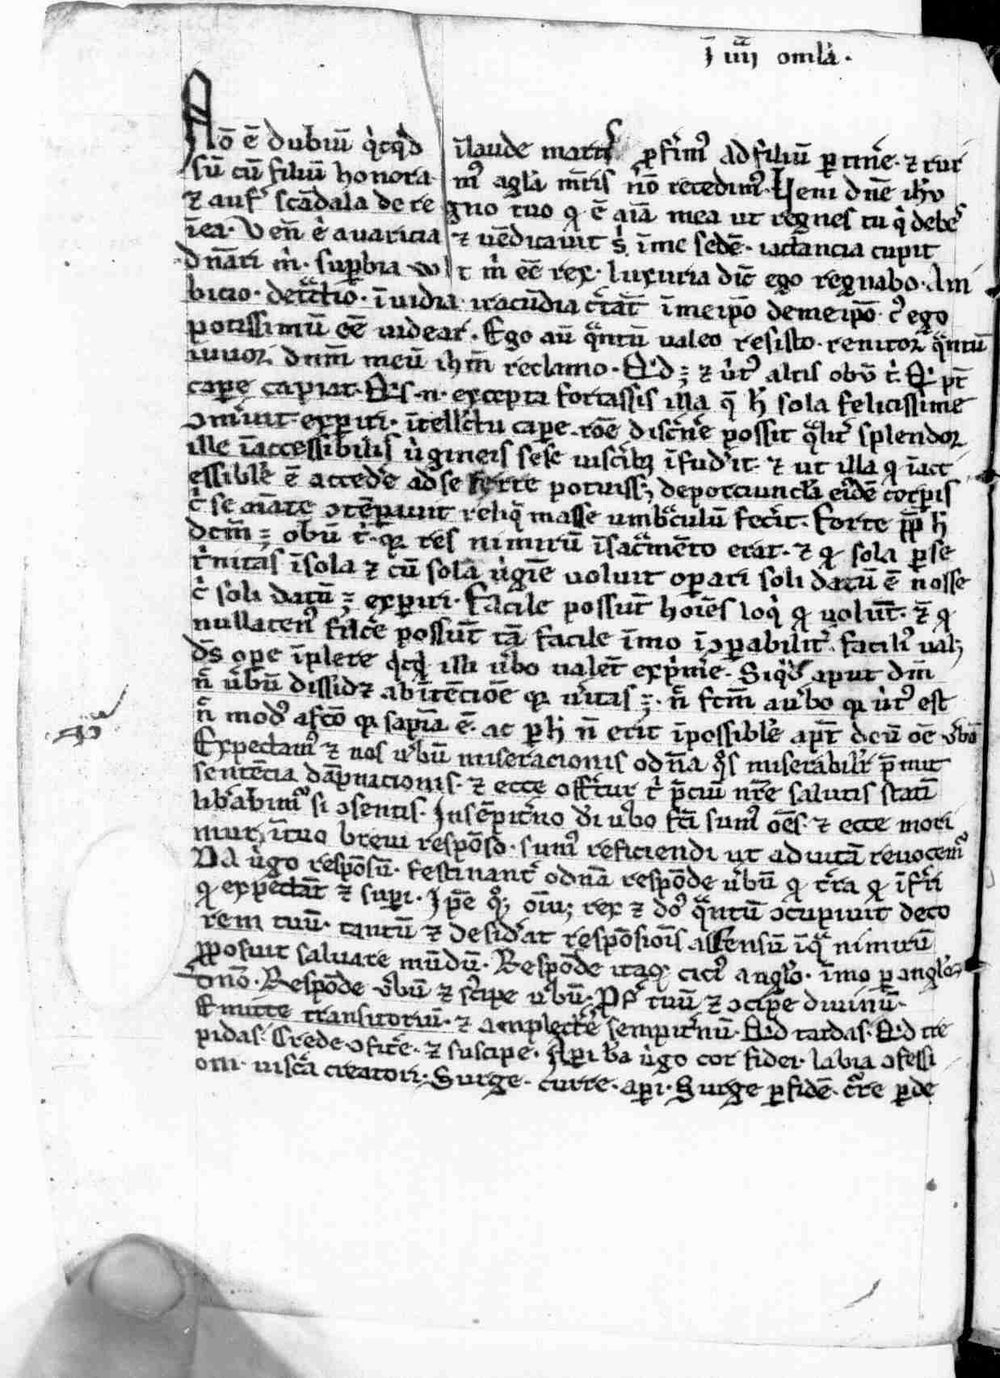 ī iiij omlā.
Nō ē dubiū q̇cq̇d ĩlaude matris ꝓferim᷒ ad filiū ꝑtine . ⁊ rur
sū cū filiū honora m᷒ a gl̄a m̄ris nō recedim᷒ . Veni dn̄e ih̄u
⁊ aufer scādala de re gno tuo q̇ ē aīa mea ut regnes tu q̇ debes
ī ea . Ven̄ e auaricia ⁊ uēdicauit s ī me sedē . iactancia cupit
dn̄ari m . suꝑbia uo lt m ēē rex . luxuria dic̄ ego regnabo . Am
bicio . detctio . īuidia . iracūdia ctāt ī me ip̄o de me ip̄o . c᷒ ego
potissimū ēē uidear . Ego aū q̄ntū ualeo resisto . renitor q̄ntū
iuuor dn̄m meū ih̄m reclamo
capere capiat excepta fortassis illa q̄ h̄ sola felicissime
ɔm̄uit exꝑiri . ītellctu cape . rōe discne possit q̄lit splendor
ille īaccessibilis ugineis sese uiscib īfudit . ⁊ ut illa q īacc
essiblē ē accede ad se ferre potuiss deporciuncl̄a eidē corꝑis
massae umbculū fecit . Forte ꝓpt h̄
res nimirū ī sacmēto erat . ⁊ q sola ꝑ se
tnitas ī sola ⁊ cū sola ugīe uoluit oꝑari soli datū ē nosse
c soli datū exꝑiri . Facile possūt hoīes loq̇ q uolūt . ⁊ q
nullaten᷒ facē possūt tā facile īmo īɔꝑabilit . facili᷒ ual
ds̄ oꝑe īplere q̇cq̇ illi ubo ualēt exṗme . Siq̇d aput dm̄
n̄ ubū dissidz ab ītēcōe q uitas . n̄ fcm̄ a ubo q ut᷒ est
n̄ mod᷒ a fcō q sapīa ē . ac ꝑ h̄ n̄ erit īpossiblē ap̄t deū oē ubū
Expectam᷒ ⁊ nos ubū miseracionis o dn̄a q̊s miserabilit p̄mit
sentēcia dāpnacionis . ⁊ ecce offtur t p̄ciū nr̄e salutis statī
lib̄abim᷒ si ɔsentis . In sēpitno di ubo fc̄i sum᷒ oēs . ⁊ ecce mori
mur ī tuo breui respōso . sum᷒ reficiendi ut ad uitā reuocem᷒
Da ugo respōsū . festinant o dn̄a respōde ubū q tra q īfi
q expectāt ⁊ suꝑi . Ip̄e q̊ oīu rex ⁊ do᷒ q̄ntū ɔcupiuit deco
rem tuū . tantū ⁊ desidat respōsiōis assensū ī q̄ nimirū
ꝓposuit saluare mūdū . Respōde itaq cici᷒ anglo . īmo ꝑ anglō
dn̄o . Respōde ubū ⁊ sc̄ipe ubū . Pf tuū ⁊ ɔcipe diuinū .
Emitte transitoriū . ⁊ amplecte sempitnū . Q̇d tardas . Q̇d tre
pidas . Crede ɔfitē . ⁊ suscipe . Aꝑi b̄a ugo cor fidei . labia ɔfessi
oni . uiscā creatori . Surge . curre . aꝑi . Surge ꝑ fidē . cr̄re ꝑ de